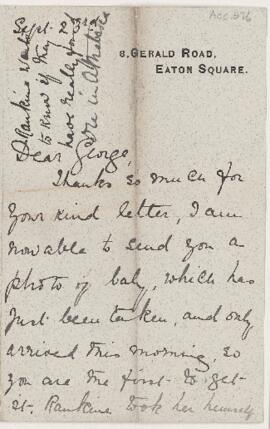 Acc. 576
8, GERALD ROAD,
EATON SQUARE.
Sept. 23rd
Rankine wants
to know if they
have really found
ore in
Dear George,
Thanks so much for
your kind letter, I am
now able to send you a
photo of baby, which has
just been taken, and only
arrived this morning, so
you are the first to get
it. Rankine took her himself